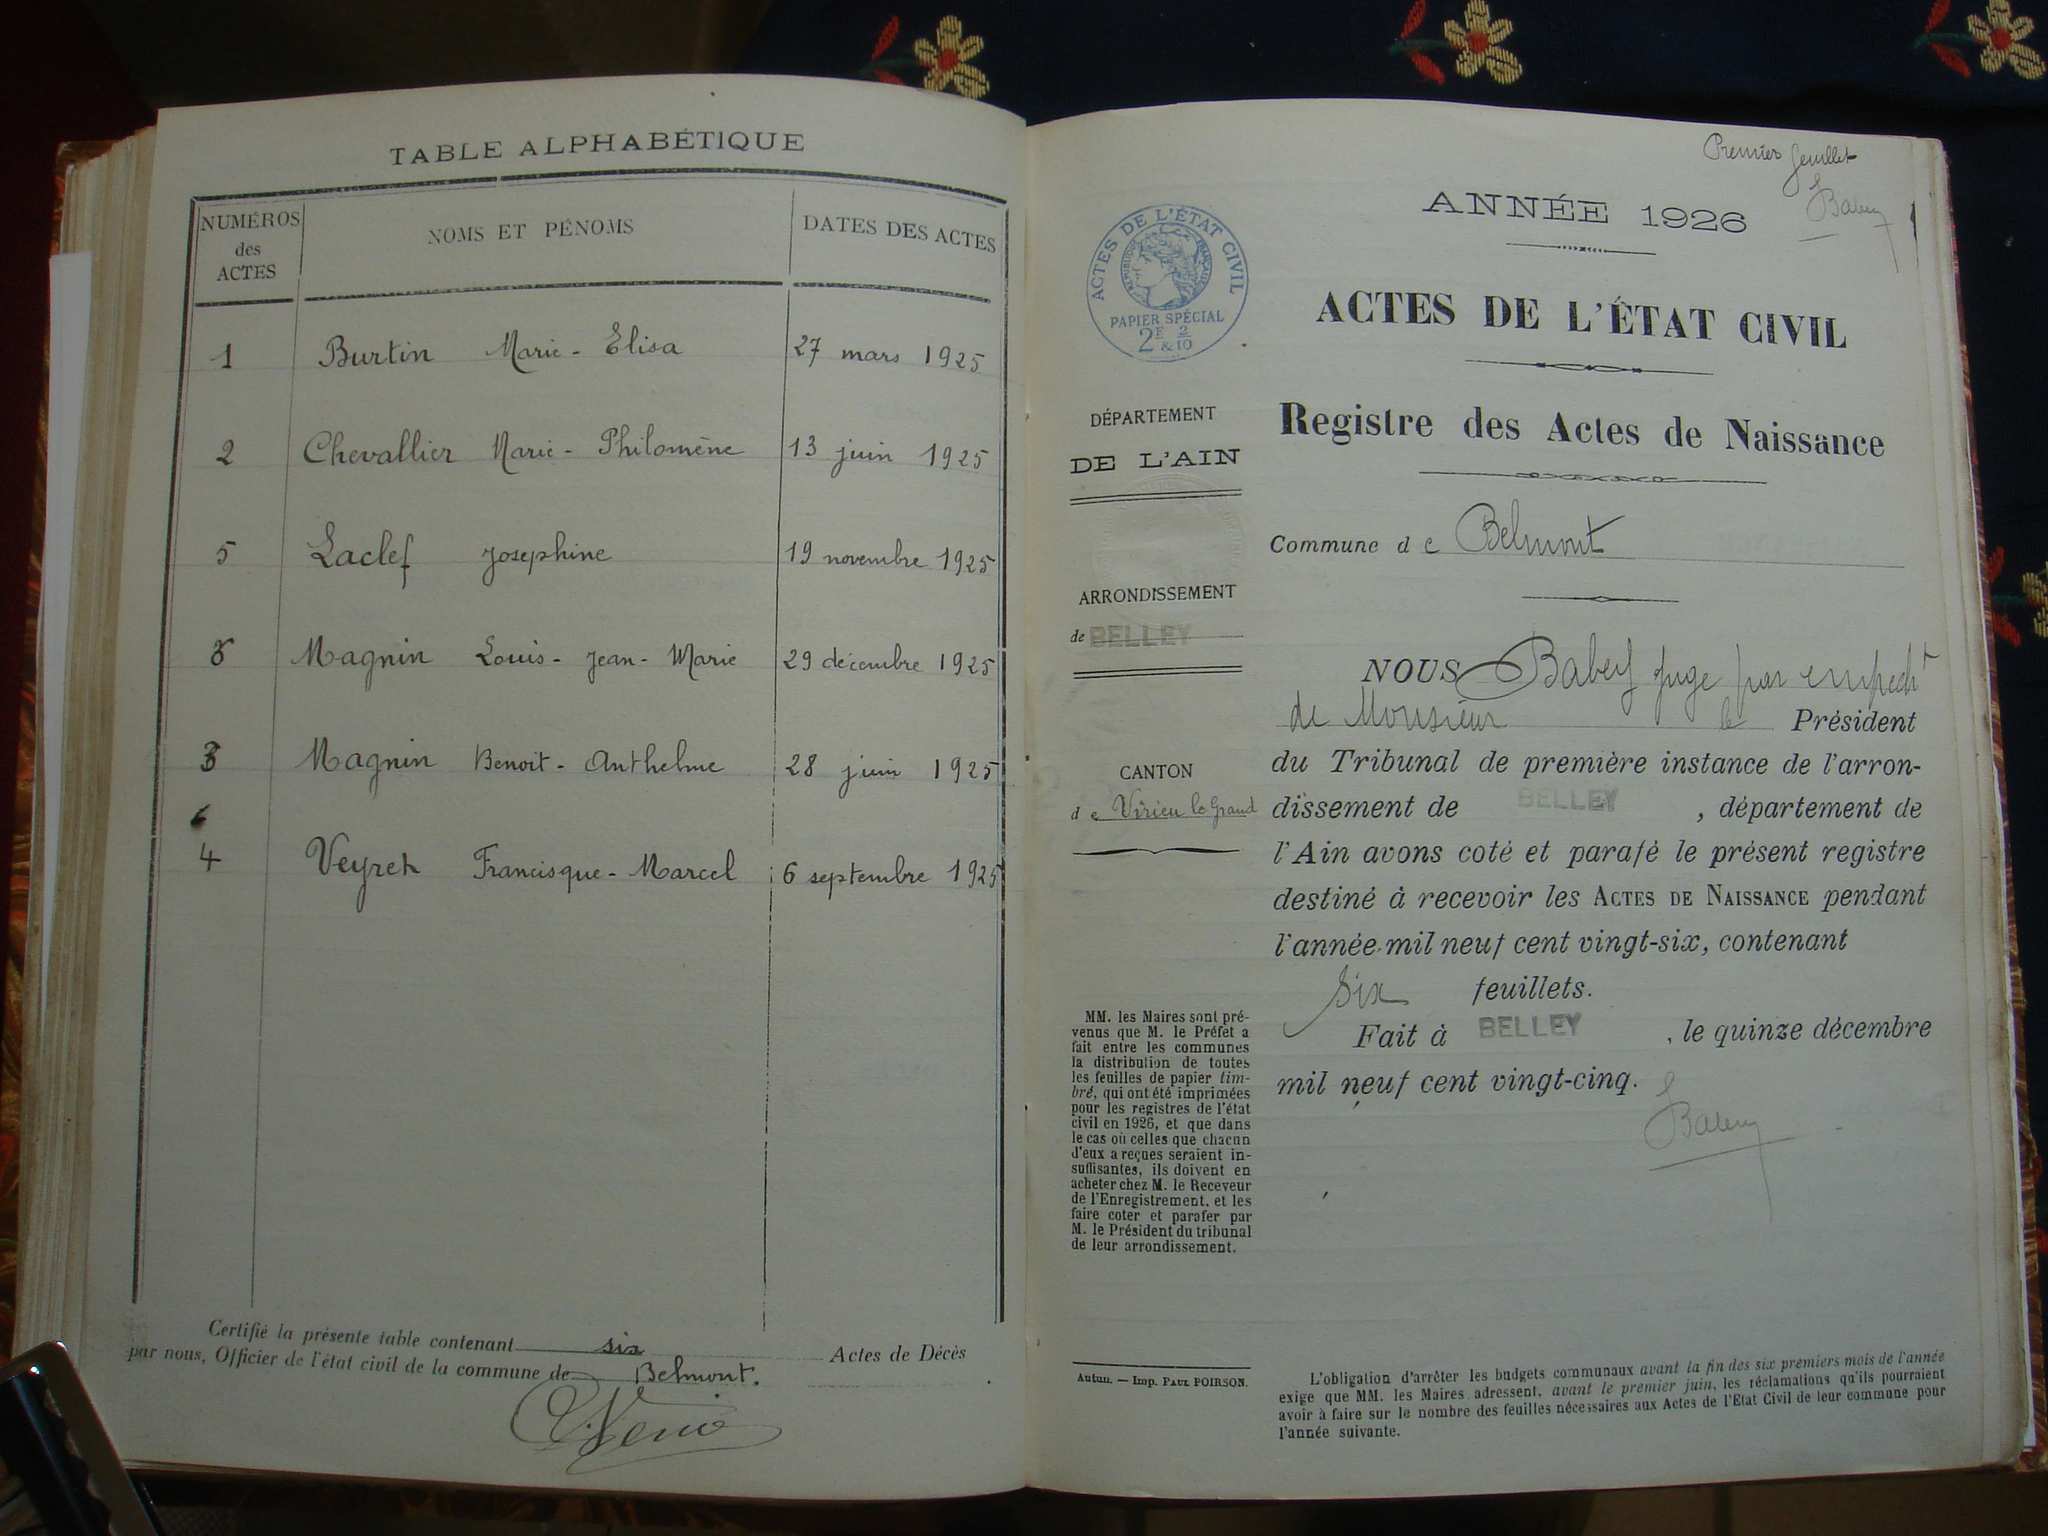 TABLE ALPHABÉTIQUE
NUMÉROS des ACTES
NOMS ET PÉNOMS
DATES DES ACTES
1 Burtin Marie-Elisa 27 mars 1925
2 Chevallier Marie-Philomène 13 juin 1925
5 Laclef Josephine 19 novembre 1925
Magnin Louis-Jean-Marie 29 décembre 1925
3 Magnin Benoit-Anthelme 28 juin 1925
4 Veyret Francisque-Marcel 6 septembre 1925
Certifié la présente table contenant six Actes de Décès
par nous, Officier de l'état civil de la commune de Belmont.
Premier feuillet
ANNÉE 1926
ACTES DE L'ÉTAT CIVIL
RÉPUBLIQUE FRANÇAISE
PAPIER SPÉCIAL
2F & 2/10
ACTES DE L'ÉTAT CIVIL
Registre des Actes de Naissance
Commune de Belmont
DÉPARTEMENT
DE L'AIN
ARRONDISSEMENT
de BELLEY
CANTON
de Virieu le Grand
MM. les Maires sont pré-
venus que M. le Préfet a
fait entre les communes
la distribution de toutes
les feuilles de papier tim-
bré, qui ont été imprimées
pour les registres de l'état
civil en 1926, et que dans
le cas où celles que chacun
d'eux a reçues seraient in-
suffisantes, ils doivent en
acheter chez M. le Receveur
de l'Enregistrement, et les
faire coter et parafer par
M. le Président du tribunal
de leur arrondissement.
Autun. — Imp. PAUL POIRSON.
NOUS Babey juge par empecht
de Monsieur le Président
du Tribunal de première instance de l'arron-
dissement de BELLEY, département de
l'Ain avons coté et parafé le présent registre
destiné à recevoir les ACTES DE NAISSANCE pendant
l'année mil neuf cent vingt-six, contenant
six feuillets.
Fait à BELLEY, le quinze décembre
mil neuf cent vingt-cinq.
L'obligation d'arrêter les budgets communaux avant la fin des six premiers mois de l'année
exige que MM. les Maires adressent, avant le premier juin, les réclamations qu'ils pourraient
avoir à faire sur le nombre des feuilles nécessaires aux Actes de l'Etat Civil de leur commune pour
l'année suivante.